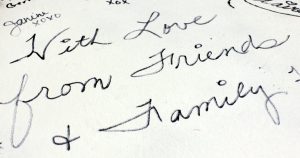 Janine
xoxo
With Love
from Friends
& Family